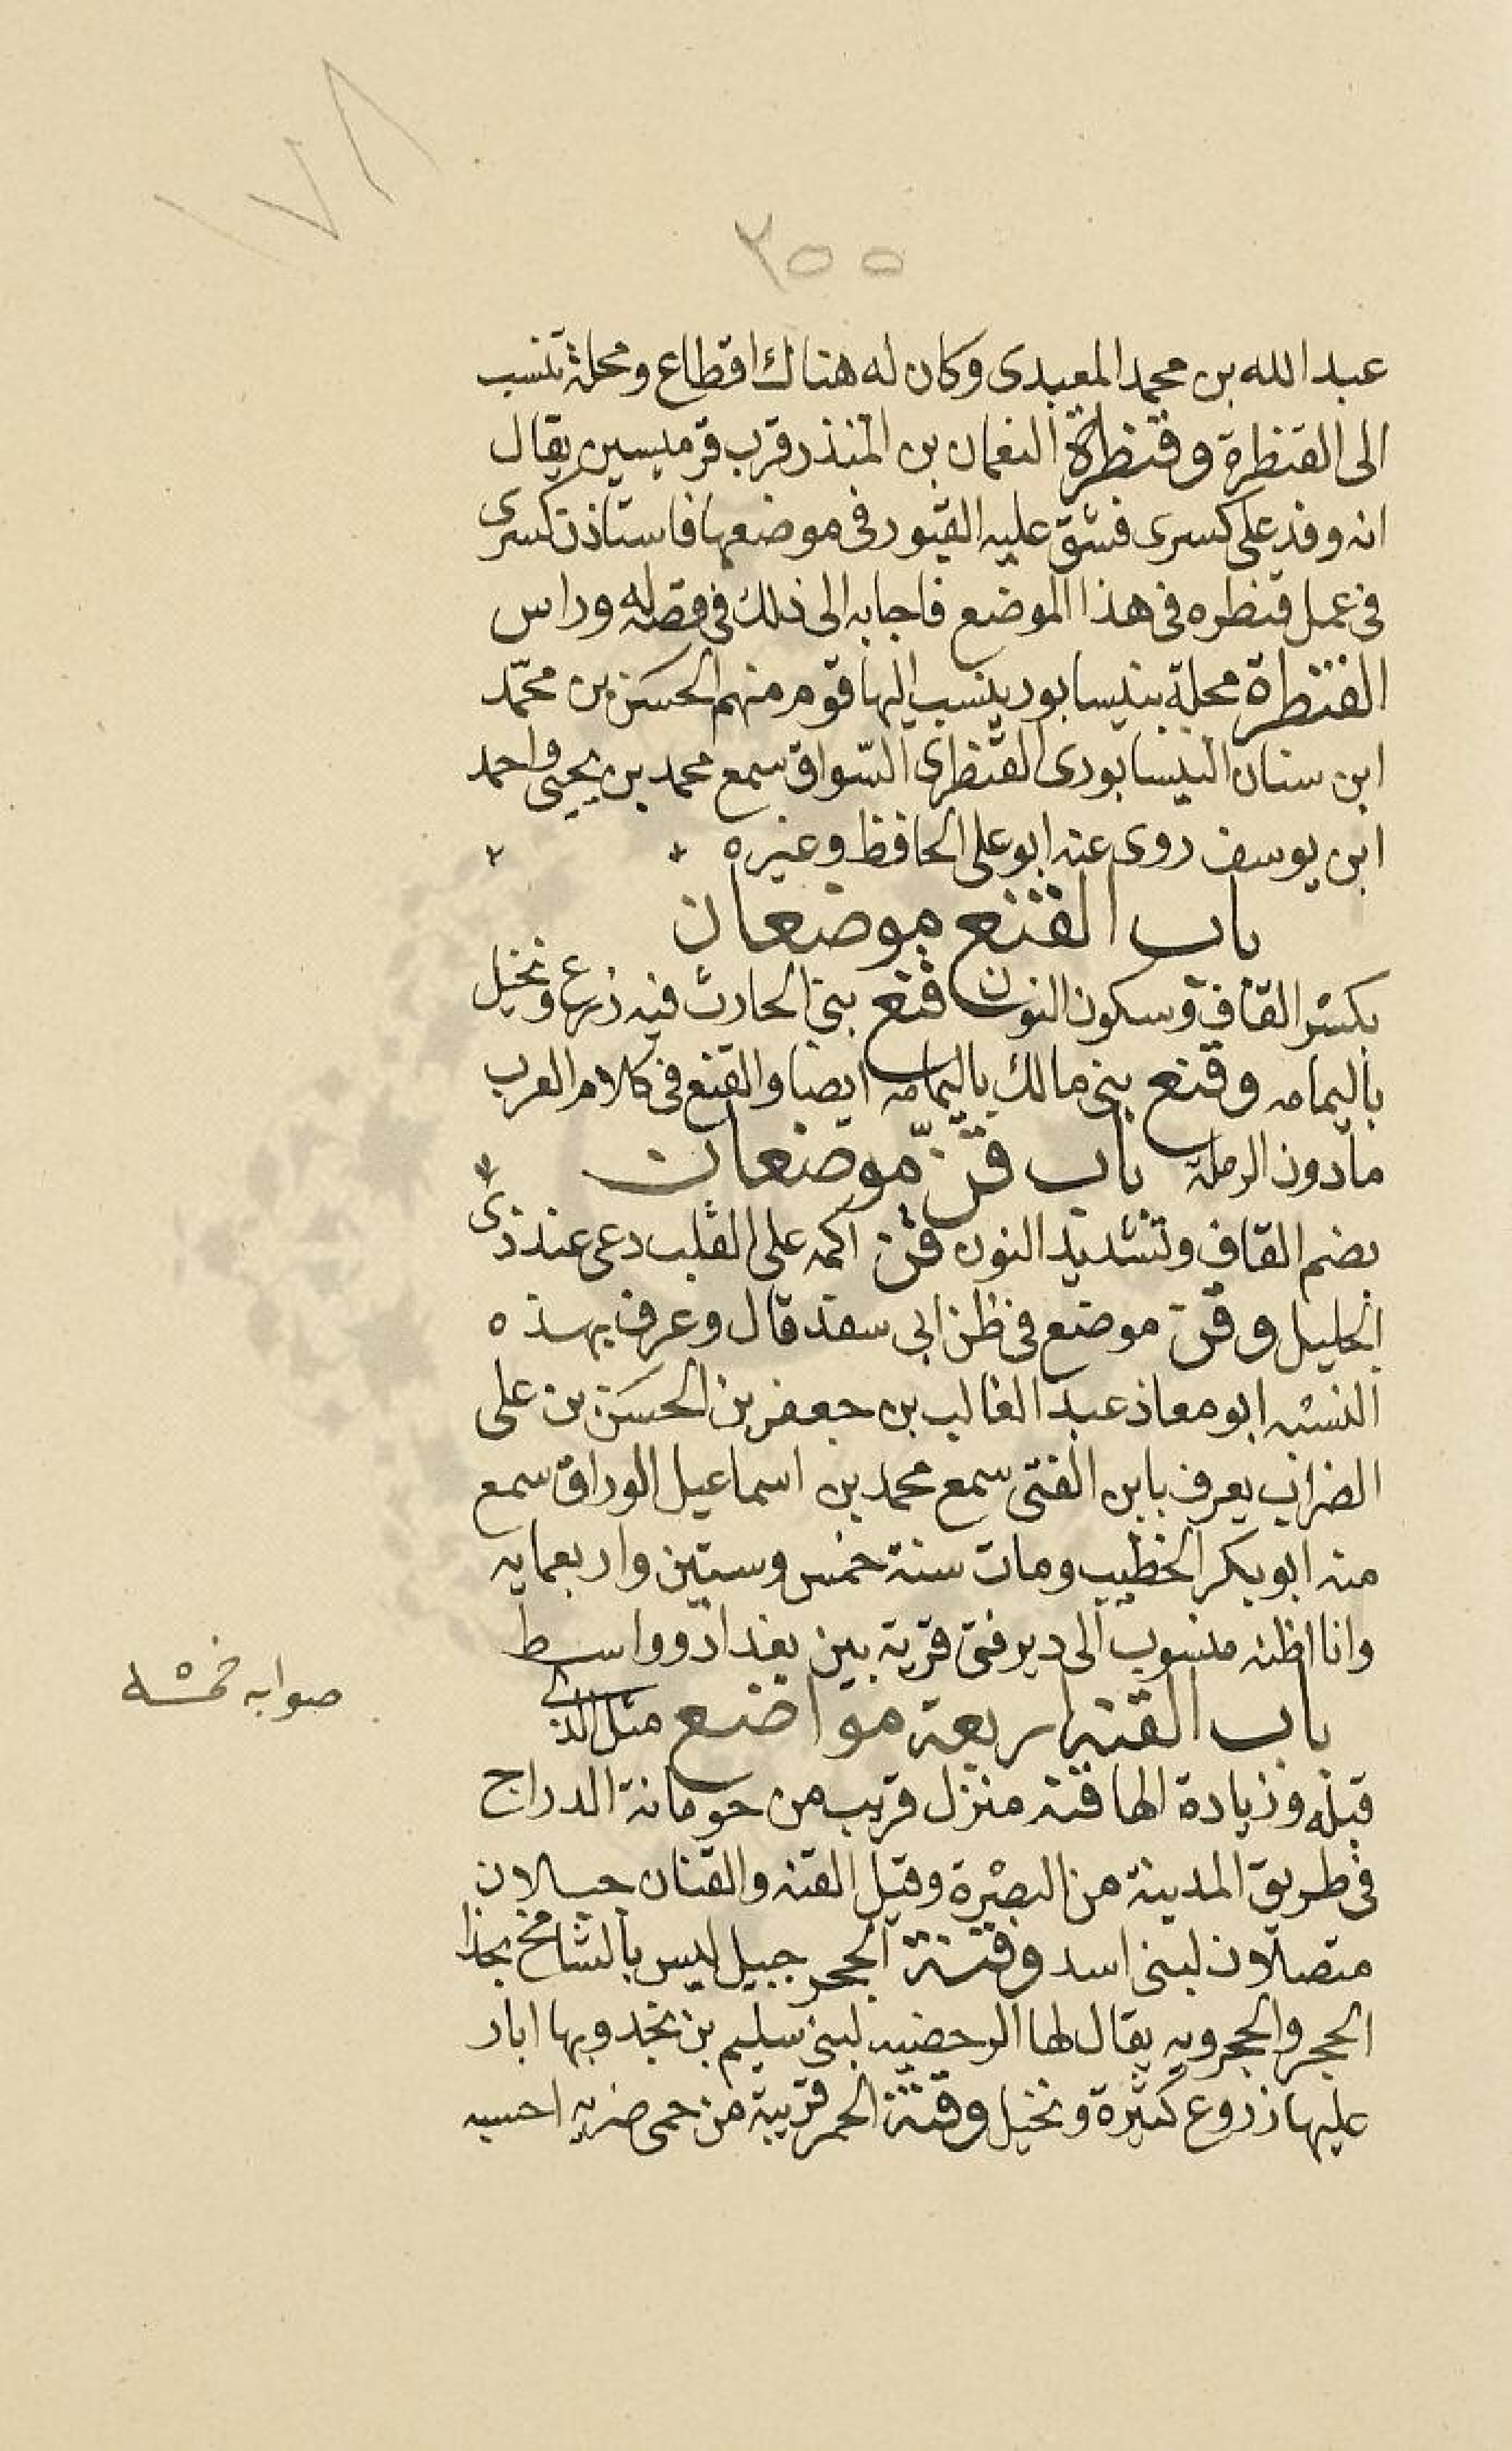 ١٧٨
٣٥٥
عبد الله بن محمد المعبدى وكان له هناك اقطاع ومحلة تنسب
الى القنطرة وقنطرة النعمان بن المنذر قرب قرميسين يقال
انه وفد على كسرى فشق عليه العبور فى موضعها فاستاذن كسرى
فى عمل قنطره فى هذا الموضع فاجابه الى ذلك فى قصة له وراس
القنطرة محلة بنيسابور ينسب اليها قوم منهم الحسن بن محمّد
ابن سنان النيسابورى القنطرى السّواق سمع محمد بن يحيى واحمد
ابن يوسف روى عنه ابو على الحافظ وغيره
باب القنع موضعان
بكسر القاف وسكون النون قنع بنى الحارث فيه زرع ونخيل
باليمامه وقنع بنى مالك باليمامه ايضا والقنع فى كلام العرب
مادون الرملة باب قنّ موضعان
بضم القاف وتشديد النون قن اكمه على القلب دعى عند ذى
الجليل وقنّ موضع فى ظن ابى سعد قال وعرف بهذه
النسبه ابو معاذ عبد الغالب بن جعفر بن الحسن بن على
الضراب يعرف بابن القنى سمع محمد بن اسماعيل الوراق سمع
منه ابو بكر الخطيب ومات سنة خمس وستين واربعمايه
وانا اظنه منسوب الى دير قنى قرية بين بغداد وواسط
باب القنه اربعة مواضع مثل الذى
صوابه خمسه
قبله وزيادة الها قنه منزل قريب من حومانة الدراج
فى طريق المدينة من البصرة وقيل القنه والقنان جبالان
متصلان لبنى اسد وقنة الحجر جبيل ليس بالشامخ بحذا
الحجر والحجر ويه يقال لها الرحضيه لبنى سليم بن نجد وبها ابار
عليها زروع كثيرة ونخيل وقنة الحمر قريبة من حمى ضريه احسبه